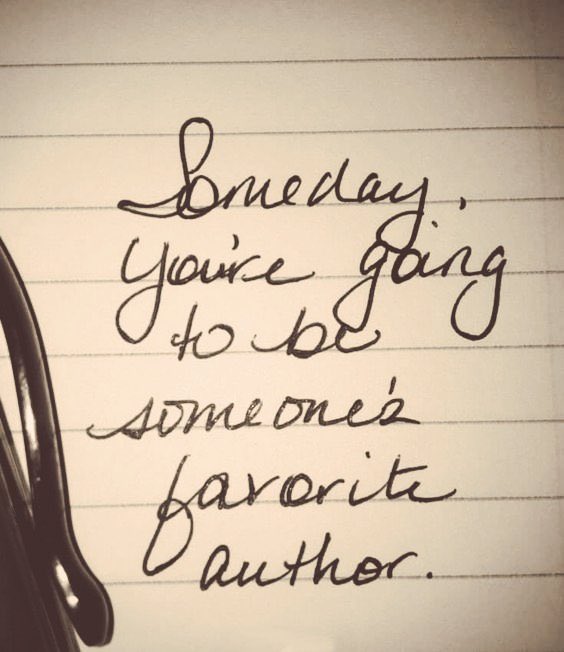 Someday,
you're going
to be
someone's
favorite
author.